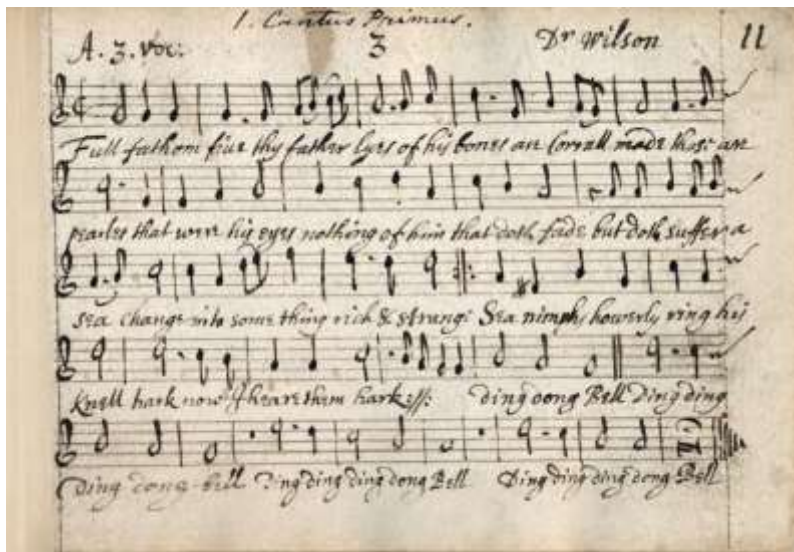 1. Cantus Primus.
A. 3. voc: 3 Dr Wilson 11
Full fathom five thy father lyes of his bones are Corrall made those are
pearles that were his eyes nothing of him that doth fade but doth suffer a
sea change into some thing rich & strange Sea nimphs howerly ring his
knell hark now I heare them hark :ss: ding dong Bell Ding ding
Ding dong bell Ding ding ding dong Bell Ding ding ding dong Bell